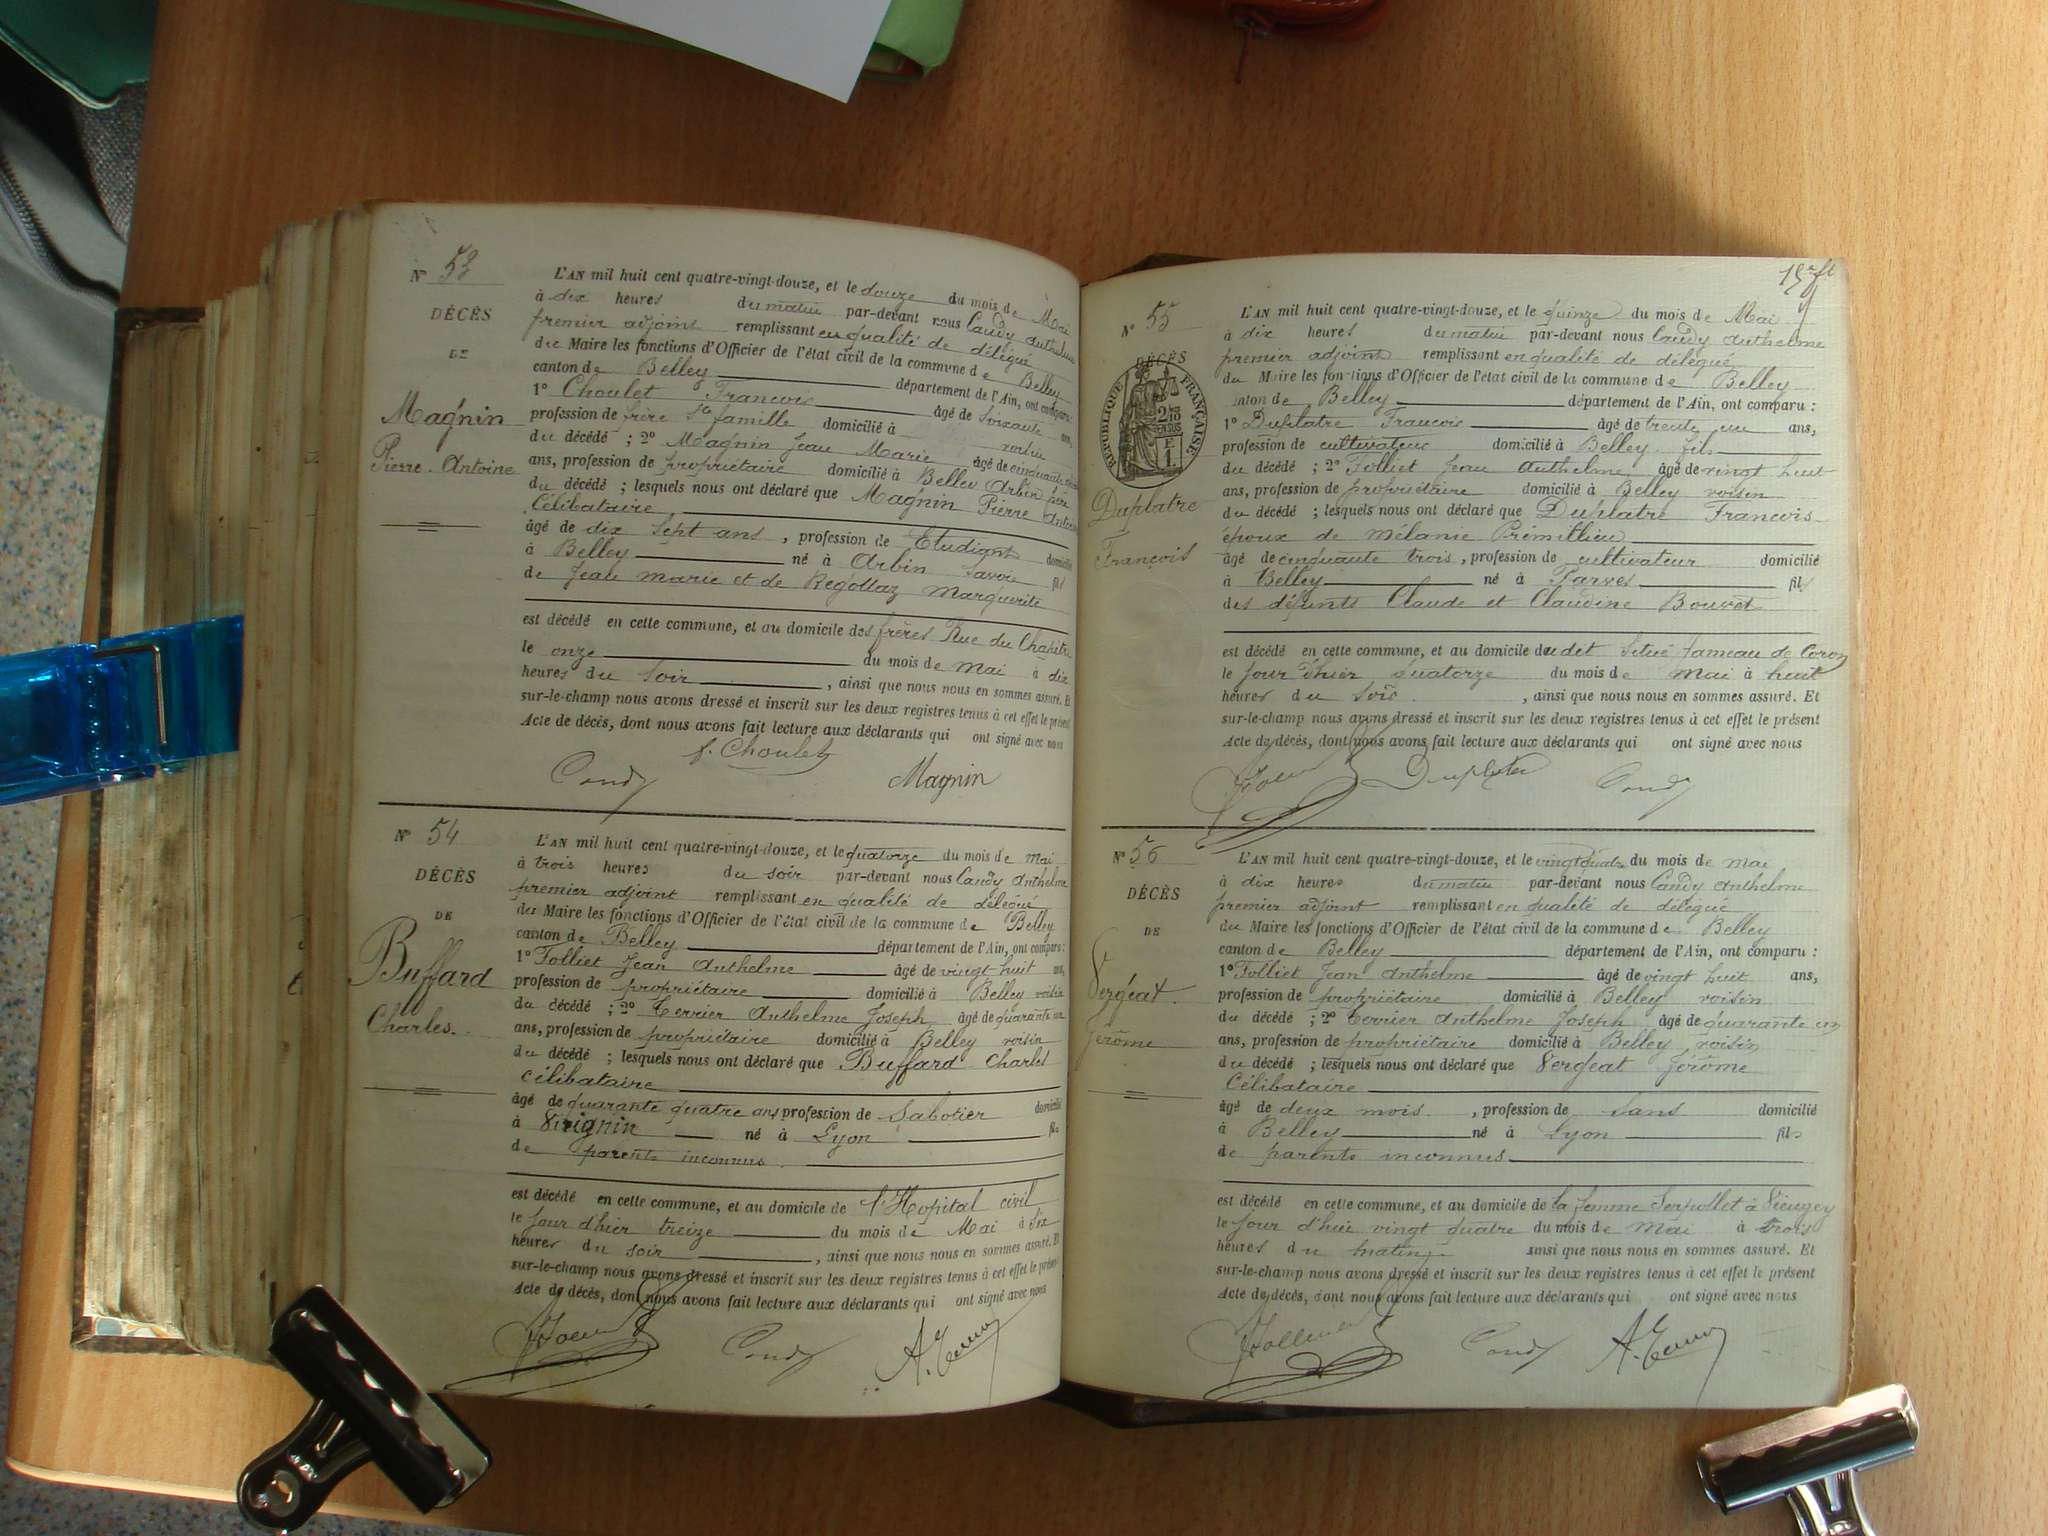 Nº 53
DÉCÈS
DE
Magnin
Pierre-Antoine
L'AN mil huit cent quatre-vingt-douze, et le douze du mois de Mai
à dix heures du matin par-devant nous Candy Anthelme
premier adjoint remplissant en qualité de délégué
du Maire les fonctions d'Officier de l'état civil de la commune de Belley
canton de Belley département de l'Ain, ont comparu :
1º Choulet François âgé de soixante ans,
profession de frère Ste famille domicilié à voisin
du décédé ; 2º Magnin Jean Marie âgé de cinquante
ans, profession de propriétaire domicilié à Belley Arbin père
du décédé ; lesquels nous ont déclaré que Magnin Pierre Antoine
Célibataire
âgé de dix sept ans , profession de Etudiant domicilié
à Belley né à Arbin Savoie fils
de Jean marie et de Regottaz Marguerite
est décédé en cette commune, et au domicile des frères Rue du Chapitre
le onze du mois de mai à dix
heures du soir , ainsi que nous nous en sommes assuré. Et
sur-le-champ nous avons dressé et inscrit sur les deux registres tenus à cet effet le présent
Acte de décès, dont nous avons fait lecture aux déclarants qui ont signé avec nous
f. Choulet
Candy Magnin
Nº 54
DÉCÈS
DE
Buffard
Charles.
L'AN mil huit cent quatre-vingt-douze, et le quatorze du mois de mai
à trois heures du soir par-devant nous Candy Anthelme
premier adjoint remplissant en qualité de délégué
du Maire les fonctions d'Officier de l'état civil de la commune de Belley
canton de Belley département de l'Ain, ont comparu :
1º Tolliet Jean Anthelme âgé de vingt huit ans,
profession de propriétaire domicilié à Belley voisin
du décédé ; 2º Terrier Anthelme Joseph âgé de quarante un
ans, profession de propriétaire domicilié à Belley voisin
du décédé ; lesquels nous ont déclaré que Buffard Charles
célibataire
âgé de quarante quatre ans profession de Sabotier domicilié
à Virignin né à Lyon fils
de parents inconnus
est décédé en cette commune, et au domicile de l'Hopital civil
le jour d'hier treize du mois de Mai à six
heures du soir , ainsi que nous nous en sommes assuré. Et
sur-le-champ nous avons dressé et inscrit sur les deux registres tenus à cet effet le présent
Acte de décès, dont nous avons fait lecture aux déclarants qui ont signé avec nous
Candy
Nº 55
DÉCÈS
RÉPUBLIQUE FRANÇAISE
Duplatre
François
L'AN mil huit cent quatre-vingt-douze, et le quinze du mois de Mai
à dix heures du matin par-devant nous Candy Anthelme
premier adjoint remplissant en qualité de délégué
du Maire les fonctions d'Officier de l'état civil de la commune de Belley
canton de Belley département de l'Ain, ont comparu :
1º Duplatre François âgé de trente un ans,
profession de cultivateur domicilié à Belley fils
du décédé ; 2º Tolliet Jean Anthelme âgé de vingt huit
ans, profession de propriétaire domicilié à Belley voisin
du décédé ; lesquels nous ont déclaré que Duplatre François
époux de mélanie Prémillieu
âgé de cinquante trois , profession de cultivateur domicilié
à Belley né à Parves fils
des défunts Claude et Claudine Bouvet
est décédé en cette commune, et au domicile du dit Situé hameau de Coron
le jour d'hier quatorze du mois de mai à huit
heures du soir , ainsi que nous nous en sommes assuré. Et
sur-le-champ nous avons dressé et inscrit sur les deux registres tenus à cet effet le présent
Acte de décès, dont nous avons fait lecture aux déclarants qui ont signé avec nous
Duplatre Candy
Nº 56
DÉCÈS
DE
Vergeat
Jérome
L'AN mil huit cent quatre-vingt-douze, et le vingt quatre du mois de mai
à dix heures du matin par-devant nous Candy Anthelme
premier adjoint remplissant en qualité de délégué
du Maire les fonctions d'Officier de l'état civil de la commune de Belley
canton de Belley département de l'Ain, ont comparu :
1º Tolliet Jean Anthelme âgé de vingt huit ans,
profession de propriétaire domicilié à Belley voisin
du décédé ; 2º Terrier Anthelme Joseph âgé de quarante un
ans, profession de propriétaire domicilié à Belley voisin
du décédé ; lesquels nous ont déclaré que Vergeat Jérome
Célibataire
âgé de deux mois , profession de sans domicilié
à Belley né à Lyon fils
de parents inconnus
est décédé en cette commune, et au domicile de la femme Serpollet à
le jour d'hui vingt quatre du mois de mai à trois
heures du matin ainsi que nous nous en sommes assuré. Et
sur-le-champ nous avons dressé et inscrit sur les deux registres tenus à cet effet le présent
Acte de décès, dont nous avons fait lecture aux déclarants qui ont signé avec nous
Candy